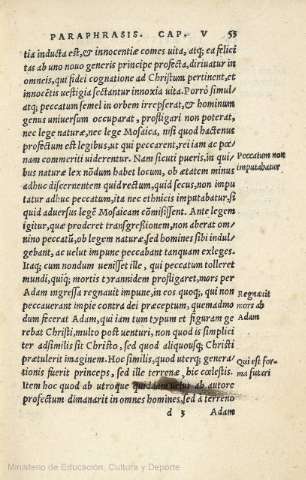 PARAPHRASIS. CAP. V 53
tia inducta est, & innocentiæ comes uita, atq; ea felici
tas ab uno nouo generis principe profecta, diriuatur in
omneis, qui fidei cognatione ad Christum pertinent, et
innoctis uestigia sectantur innoxia uita. Porrò simul
atq; peccatum semel in orbem irrepserat, & hominum
genus uniuersum occuparat, profligari non poterat,
nec lege naturæ, nec lege Mosaica, nisi quod hactenus
profectum est legibus, ut qui peccarent, rei iam ac pœ
nam commeriti uiderentur. Nam sicuti pueris, in qui
bus naturæ lex nōdum habet locum, ob ætatem minus
adhuc discernentem quid rectum, quid secus, non impu
tatur adhuc peccatum, ita nec ethnicis imputabatur, si
quid aduersus legē Mosaicam cōmisissent. Ante legem
igitur, quæ proderet transgreßionem, non aberat om
nino peccatū, ob legem naturæ, sed homines sibi indul
gebant, ac uelut impune peccabant tanquam exleges.
Itaq; cum nondum uenisset ille, qui peccatum tolleret
mundi, quiq; mortis tyrannidem profligaret, mors per
Adam ingressa regnauit impune, in eos quoq;, qui non
peccauerant impie contra dei præceptum, quemadmo
dum fecerat Adam, qui iam tum typum et figuram ge
rebat Christi, multo post uenturi, non quod is simplici
ter adsimilis sit Christo, sed quod aliquousq; Christi
prætulerit imaginem. Hoc similis, quod uterq; genera
tionis fuerit princeps, sed ille terrenæ, hic cœlestis.
Item hoc quod ab utroque quiddam uelut ab autore
profectum dimanarit in omnes homines, sed à terreno
d 3 Adam
Peccatum non
imputabatur
Regnauit
mors ab
Adam
Qui est for-
ma futuri
Ministerio de Educación, Cultura y Deporte